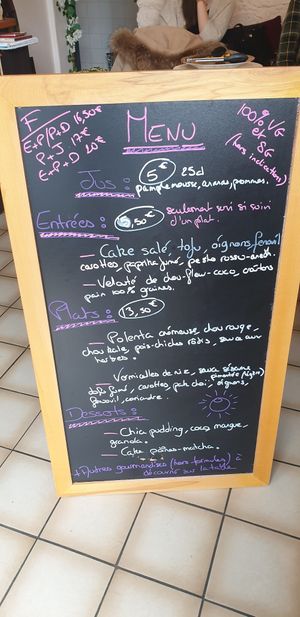 F
E+P/P+D 16,50€
P+J 17€
E+P+D 20€
MENU
100% VG
et
SG
(hors indications)
Jus : 5€ 25cl
pamplemousse, ananas, pommes.
Entrées : 6,50€ seulement servi si suivi
d'un plat.
— Cake salé, tofu, oignons, fenouil
carottes, paprika fumé, pesto
— Velouté de chou-fleur-coco, croûtons
pain 100% graines.
Plats : 13,50€
— Polenta crémeuse, chou rouge,
chou kale, pois-chiches rôtis, sauce aux
herbes.
— Vermicelles de riz, sauce sésame
pimentée (légère)
tofu fumé, carottes, pak choï, oignons,
fenouil, coriandre.
Desserts :
— Chia pudding, coco mangue,
granola.
— Cake poires-matcha.
+ Autres gourmandises (hors formules) à
découvrir sur la table